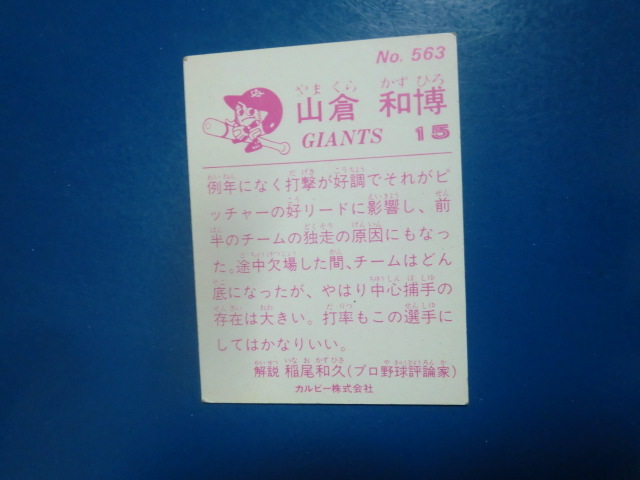 No. 563
やまくら かずひろ
山倉 和博
GIANTS 15
例年になく打撃が好調でそれがピ
ッチャーの好リードに影響し、前
半のチームの独走の原因にもなっ
た。途中欠場した間、チームはどん
底になったが、やはり中心捕手の
存在は大きい。打率もこの選手に
してはかなりいい。
解説 稲尾和久(プロ野球評論家)
カルビー株式会社